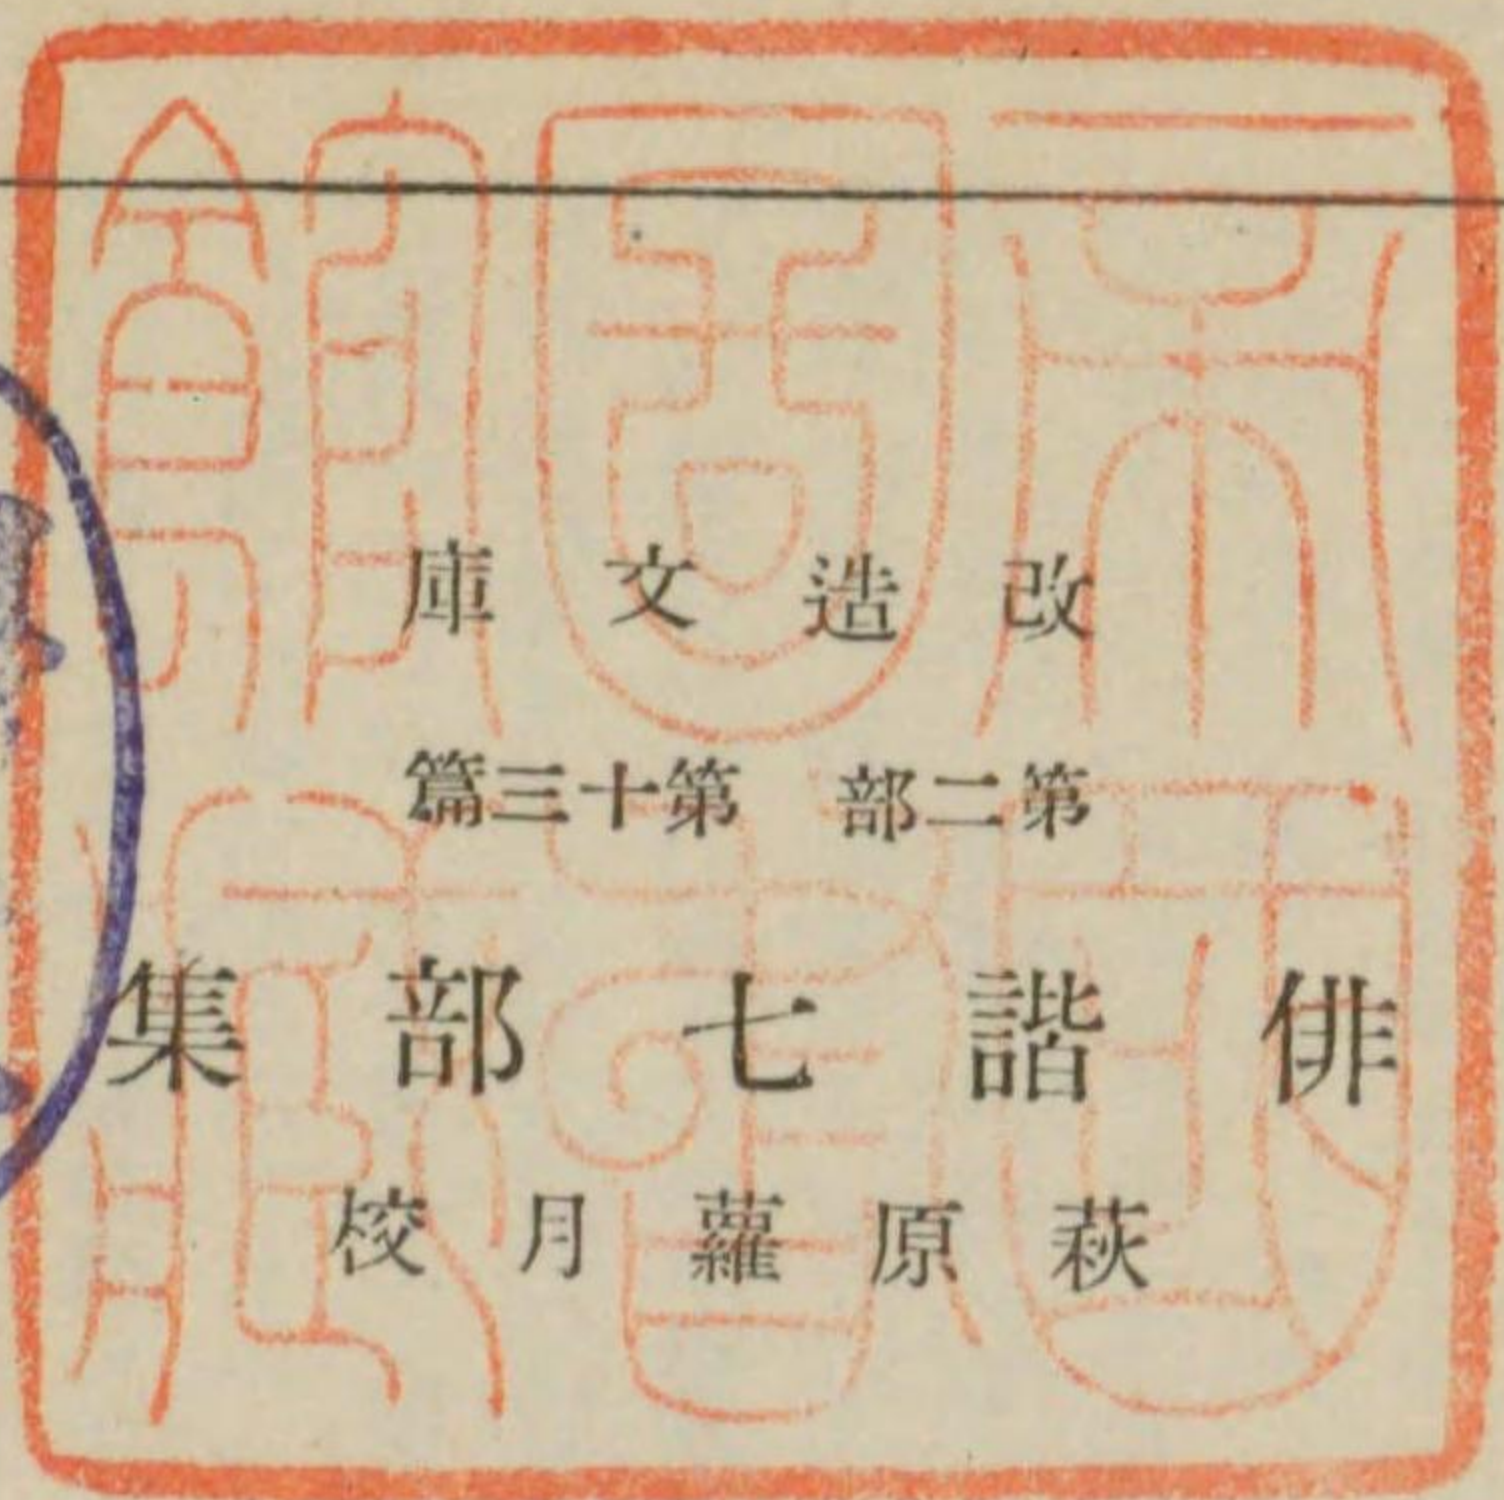 改造文庫
第二部 第十三篇
俳諧七部集
萩原蘿月校
帝國圖書館藏